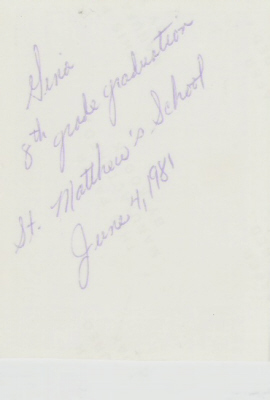 Gina
8th grade graduation
St. Matthew's School
June 4, 1981